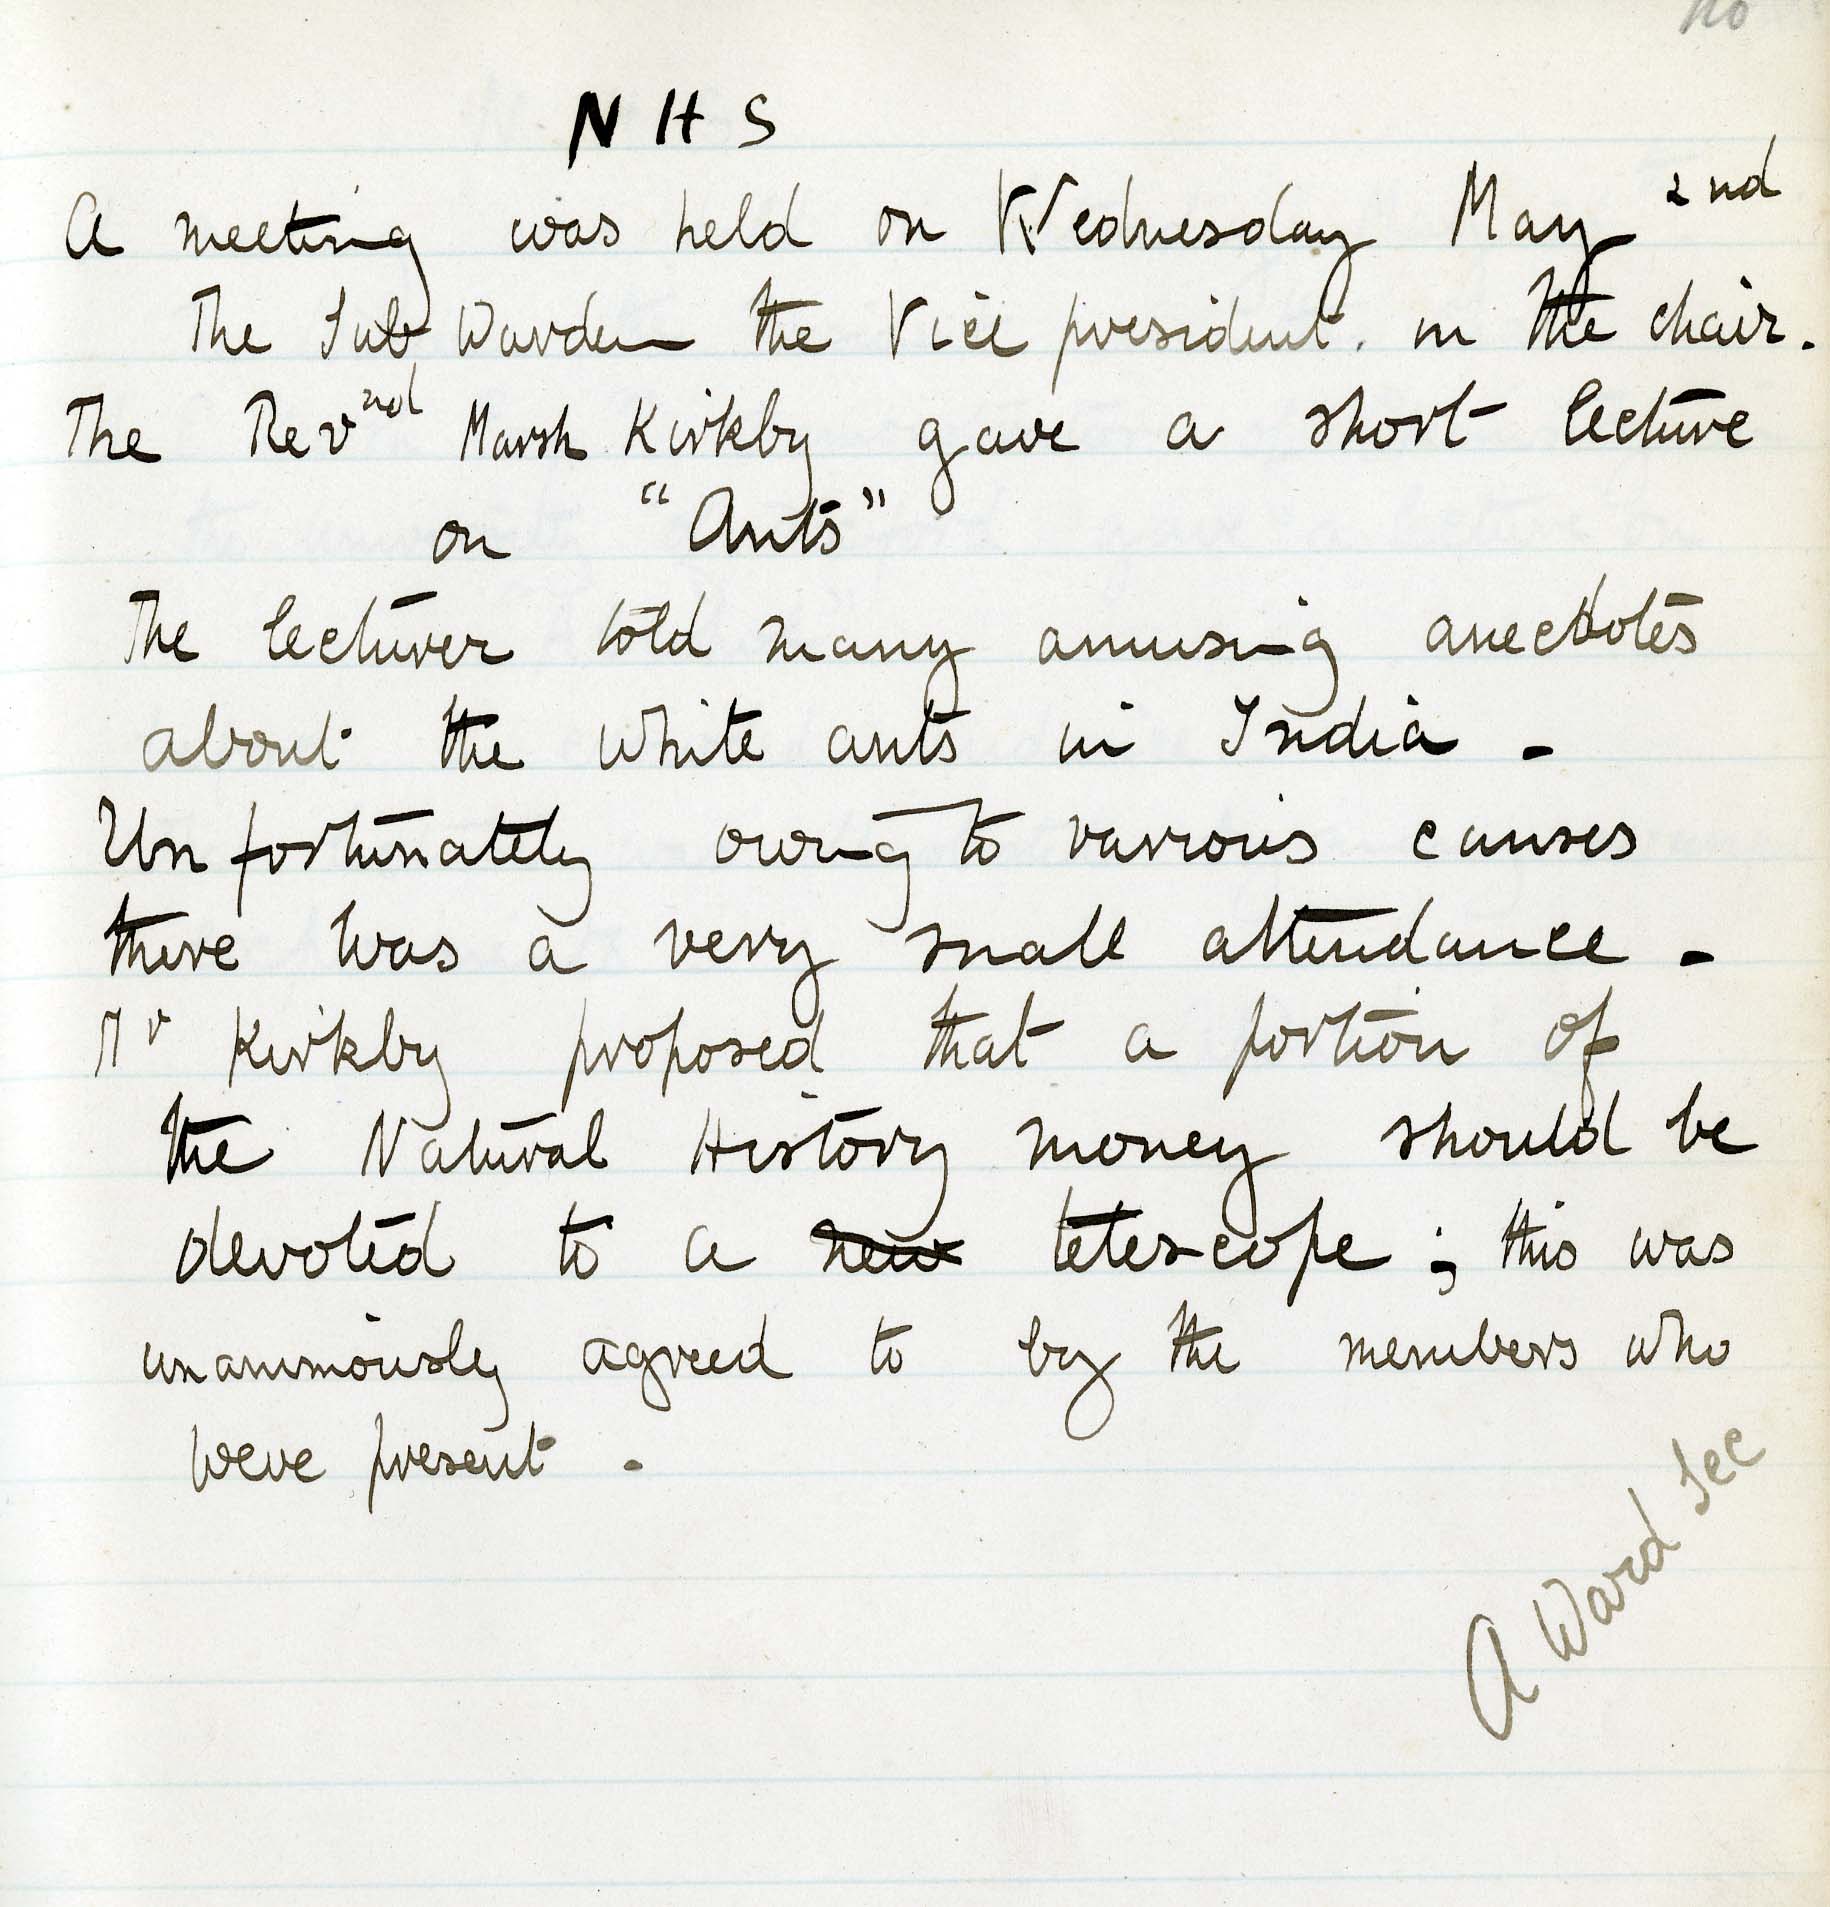 N H S
A meeting was held on Wednesday May 2nd
The Sub Warden the Vice president. in the chair.
The Revnd Marsh Kirkby gave a short lecture
on "Ants"
The lecturer told many amusing anecdotes
about the white ants in India -
Unfortunately owing to various causes
there was a very small attendance -
Mr Kirkby proposed that a portion of
the Natural History money should be
devoted to a new telescope ; this was
unanimously agreed to by the members who
were present .
A Ward Sec